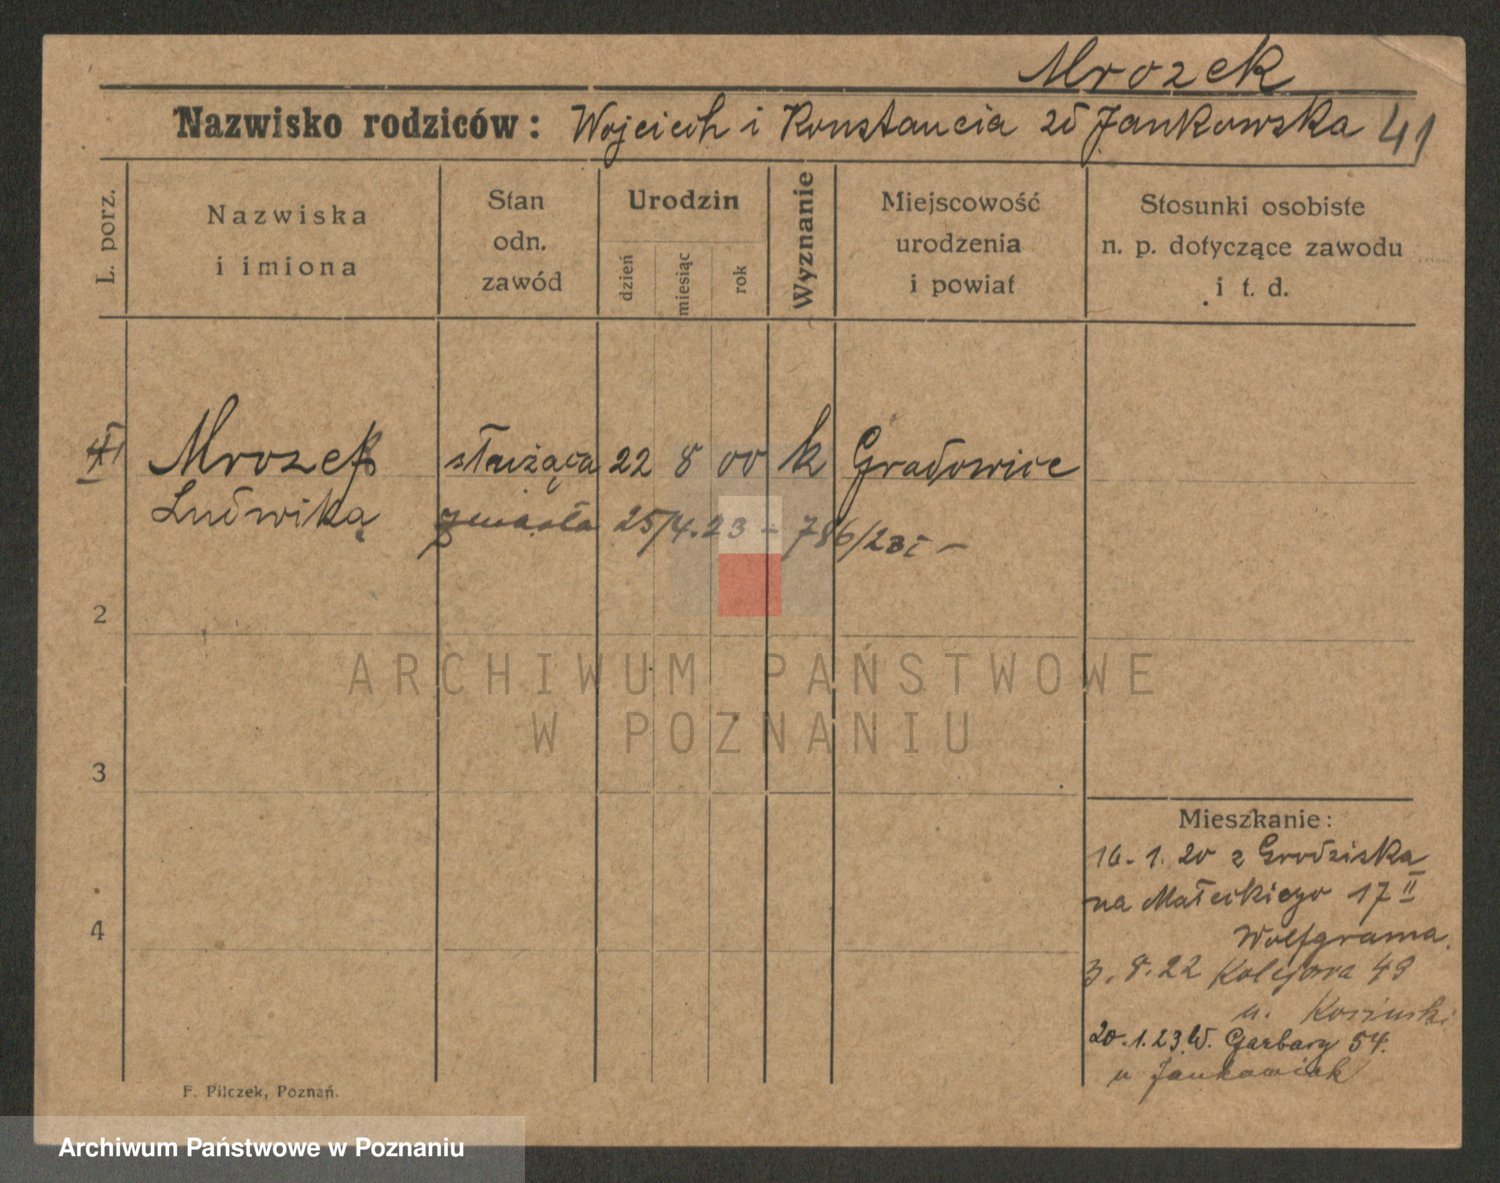 Mrozek
Nazwisko rodziców: Wojciech i Konstancia zd Jankowska 41
L. porz.
Nazwiska
i imiona
Stan
odn.
zawód
Urodzin
dzień
miesiąc
rok
Wyznanie
Miejscowość
urodzenia
i powiat
Stosunki osobiste
n. p. dotyczące zawodu
i t. d.
Mrozek służąca 22 8 00 k Gradowice
Ludwika zmarła 25/4.23 - 786/23 I -
2
3
4
Mieszkanie:
16.1.20 z Grodziska
na Małeckiego 17 II
Wolfgrama.
3.8.22 Kolejowa 49
u. Kosinski
20.1.23. W. Garbary 54.
u Jankowiak
F. Pilczek, Poznań.
ARCHIWUM PAŃSTWOWE
W POZNANIU
Archiwum Państwowe w Poznaniu